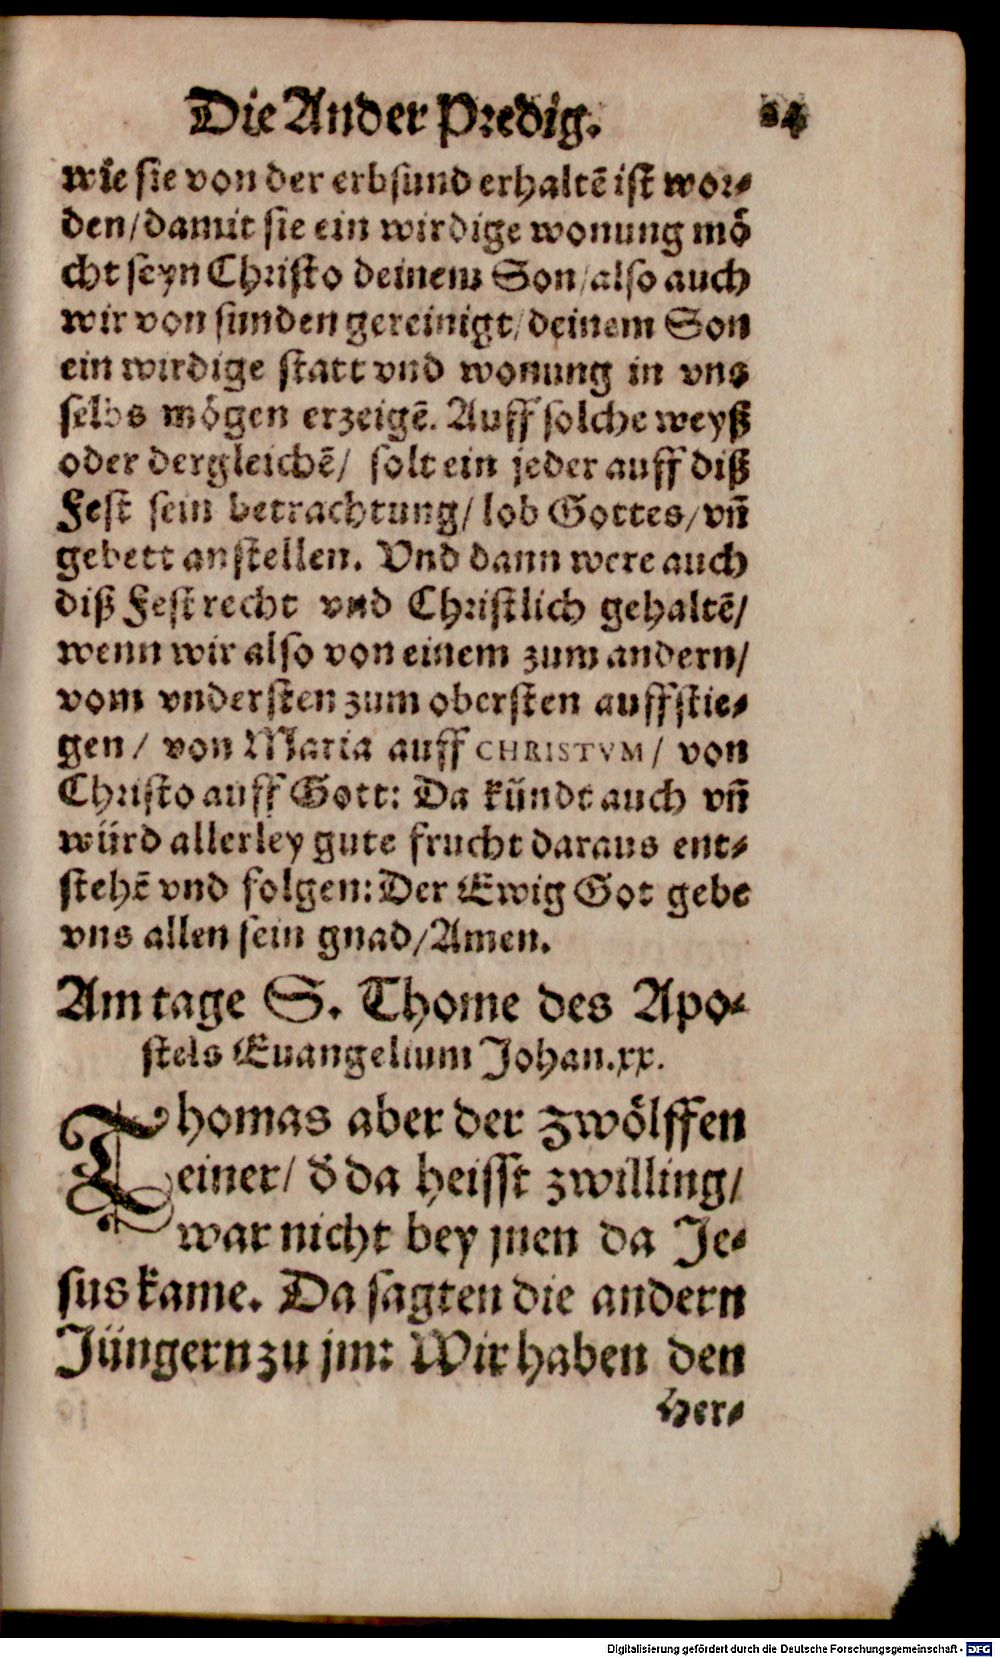 Die Ander Predig. 24
wie sie von der erbsund erhaltē ist wor⸗
den/damit sie ein wirdige wonung mö
cht seyn Christo deinem Son/also auch
wir von sunden gereinigt/deinem Son
ein wirdige statt vnd wonung in vns
selbs mögen erzeigē. Auff solche weyß
oder dergleichē/ solt ein jeder auff diß
Fest sein betrachtung/lob Gottes/vñ
gebett anstellen. Vnd dann were auch
diß Fest recht vnd Christlich gehaltē/
wenn wir also von einem zum andern/
vom vndersten zum obersten auffstie⸗
gen/ von Maria auff CHRISTVM/ von
Christo auff Gott: Da kündt auch vñ
würd allerley gute frucht daraus ent⸗
stehē vnd folgen: Der Ewig Got gebe
vns allen sein gnad/Amen.
Am tage S. Thome des Apo⸗
stels Euangelium Johan.xx.
Thomas aber der zwölffen
einer/ d̄ da heisst zwilling/
war nicht bey jnen da Je⸗
sus kame. Da sagten die andern
Jüngern zu jm: Wir haben den
Her⸗
Digitalisierung gefördert durch die Deutsche Forschungsgemeinschaft - DFG